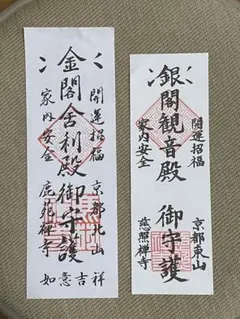 金閣舎利殿御守護
開運招福
家内安全
京都北山
鹿苑禅寺
如意吉祥
銀閣観音殿
御守護
開運招福
家内安全
京都東山
慈照禅寺